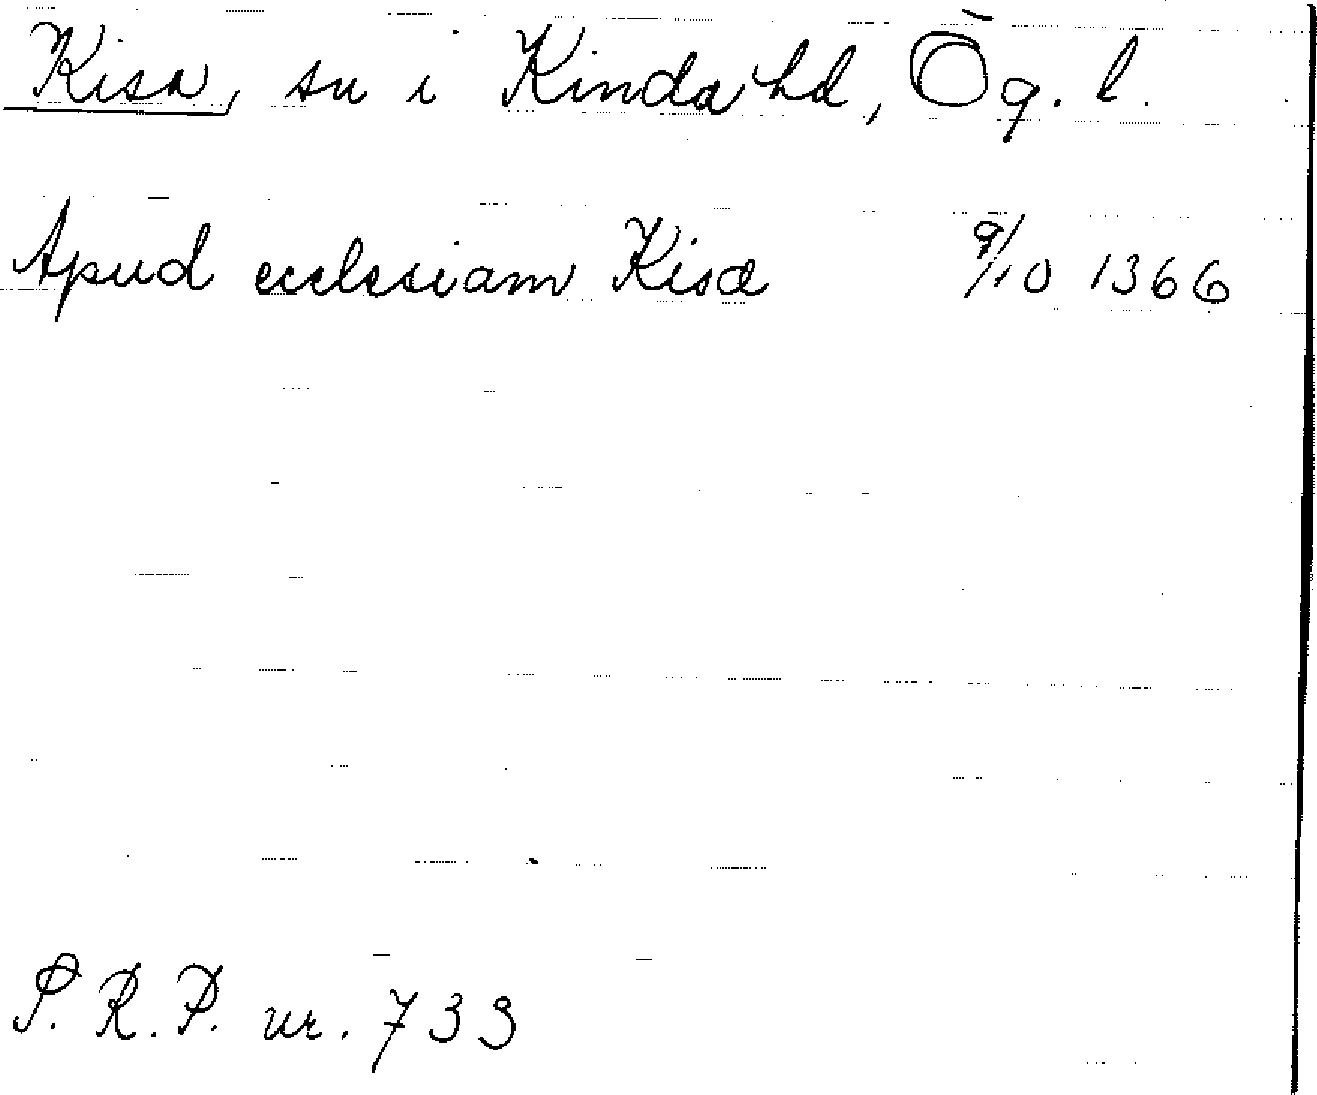 Kisa, sn i Kinda hd, Ög. l.
Apud ecclesiam Kisæ 9/10 1366
S. R. P. nr. 739